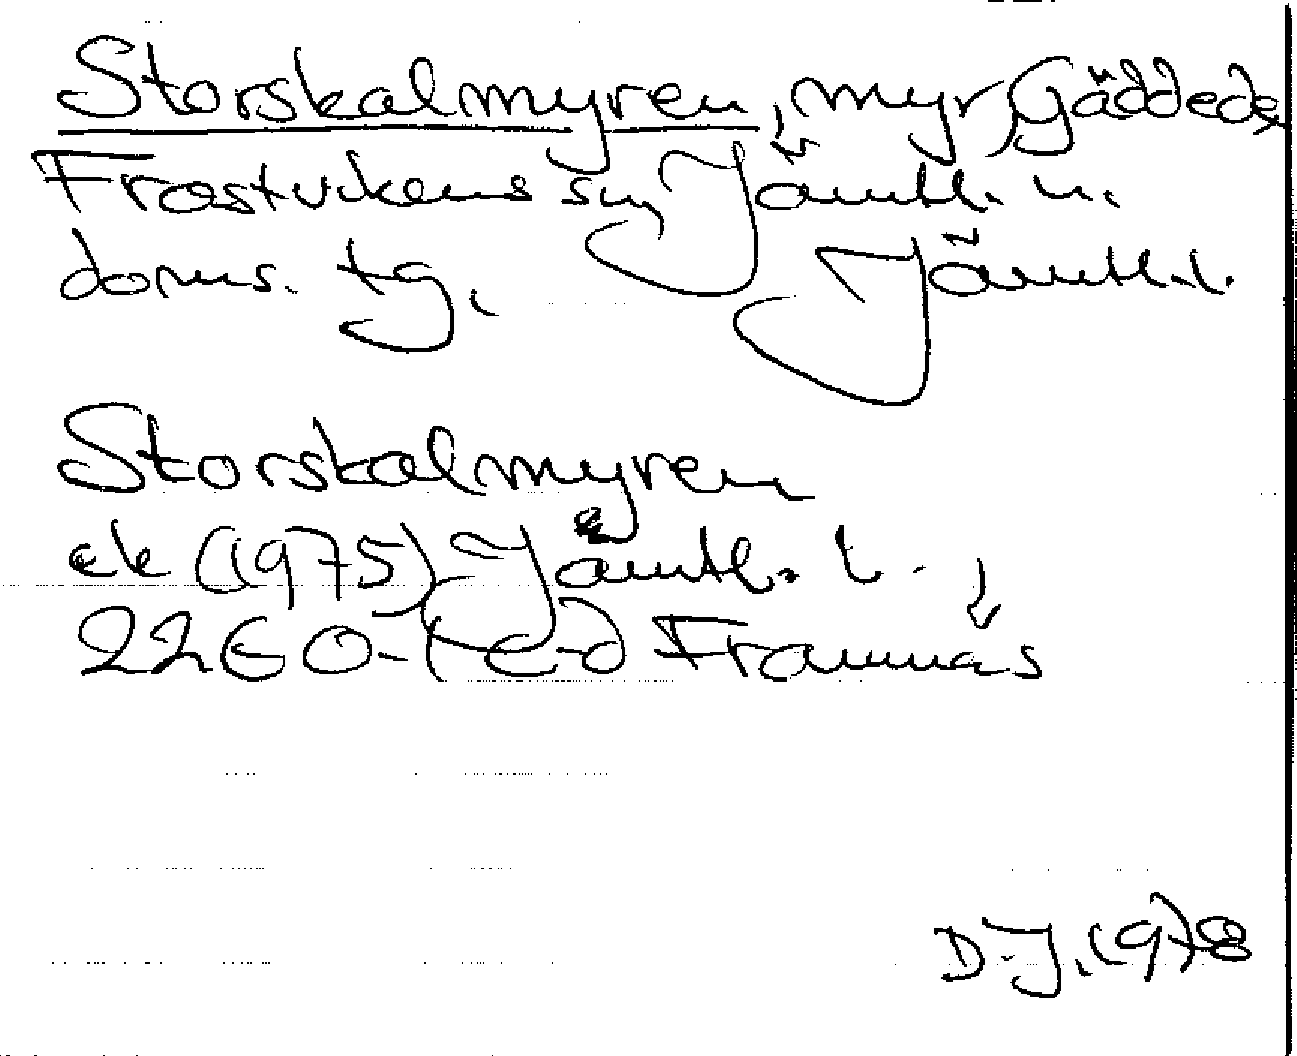 Storskalmyren, myr, Gäddede,
Frostvikens sn, Jämtl. n.
doms. tg, Jämtl. l.
Storskalmyren
ek (1975) Jämtl. l.,
22E 0-1 c-d Framnäs
D.J. 1978